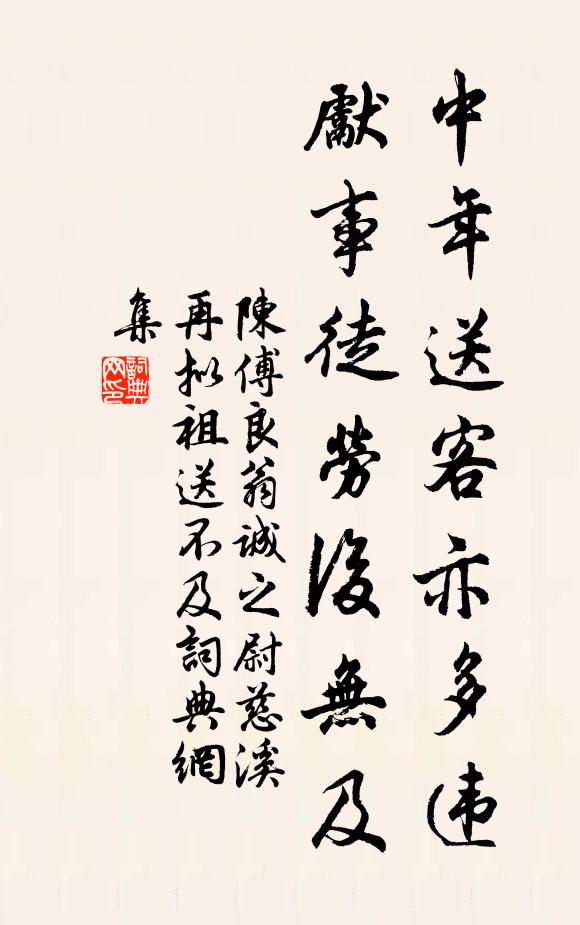 中年送客亦多违
獻事徒勞後無及
陳傅良翁誠之尉慈溪
再拟祖送不及詞典網
集
詞典
网印